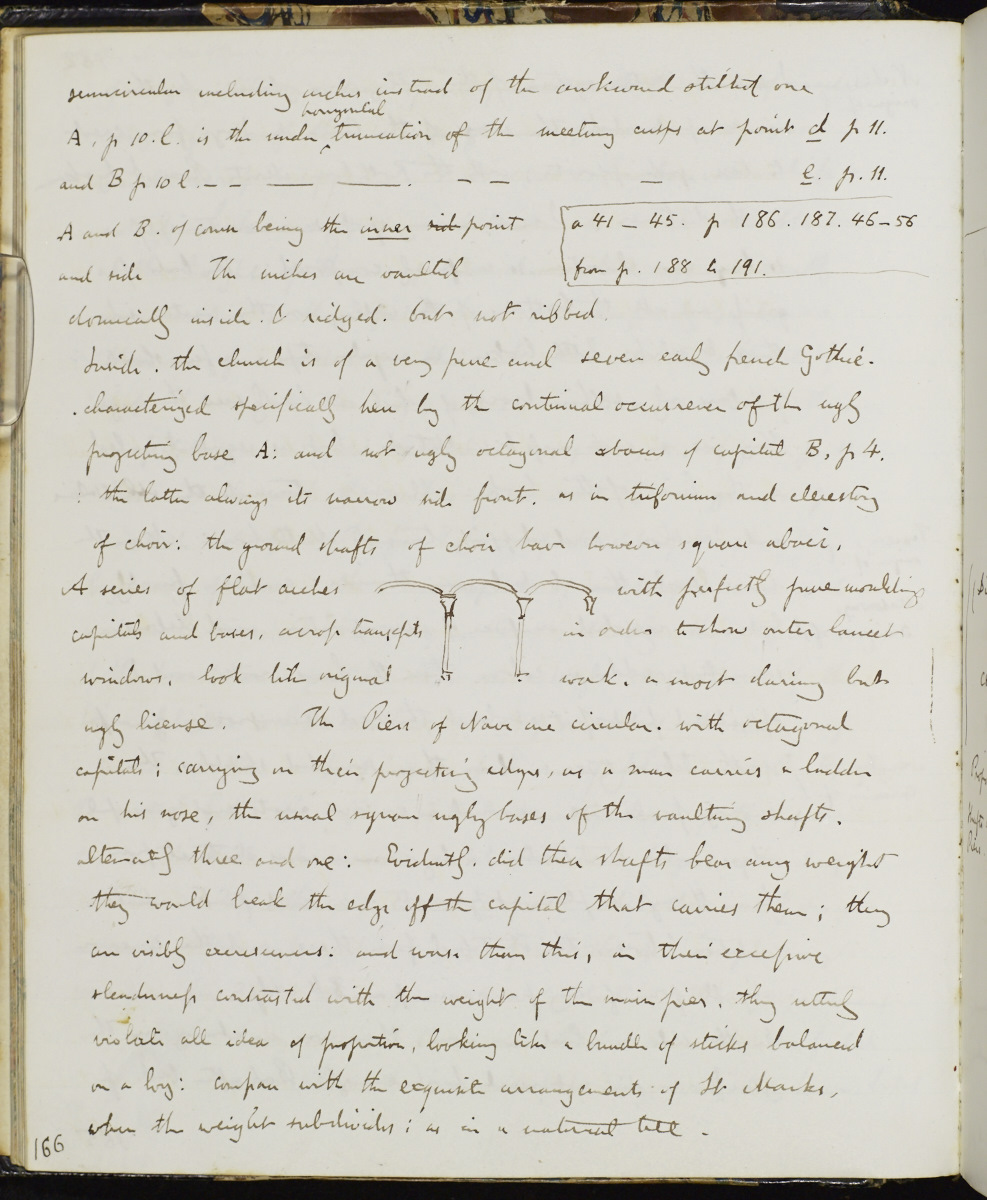 semicircular including arches instead of the awkward stilted one
horizontal
A, p 10. l. is the under truncation of the meeting cusps at point d p 11.
and B p 10 l. – – — —. – – — e. p. 11.
A and B. of course being the inner side point
a 41 – 45. p 186. 187. 46–56
from p. 188 to 191.
and side The niches are vaulted
domically inside. & ridged. but not ribbed.
Inside. the church is of a very pure and severe early french Gothic.
characterized specifically here by the continual occurrence of the ugly
projecting base A: and not ugly octagonal abacus of capital B, p 4.
: the latter always its narrow side front. as in triforium and clerestory
of choir: the ground shafts of choir have however square abaci.
A series of flat arches with perfectly pure moulding
capitals and bases, across transepts in order to show outer lancet
windows. look like original work. a most daring but
ugly license. The Piers of Nave are circular. with octagonal
capitals; carrying on their projecting edges, as a man carries a ladder
on his nose, the usual square ugly bases of the vaulting shafts.
alternately three and one: Evidently. did these shafts bear any weight
they would break the edge off the capital that carries them; they
are visibly excrescences: and worse than this, in their excessive
slenderness contrasted with the weight of the main pier, they utterly
violate all idea of proportion, looking like a bundle of sticks balanced
on a log: compare with the exquisite arrangements of St Marks,
when the weight subdivides: as in a natural tree.
166